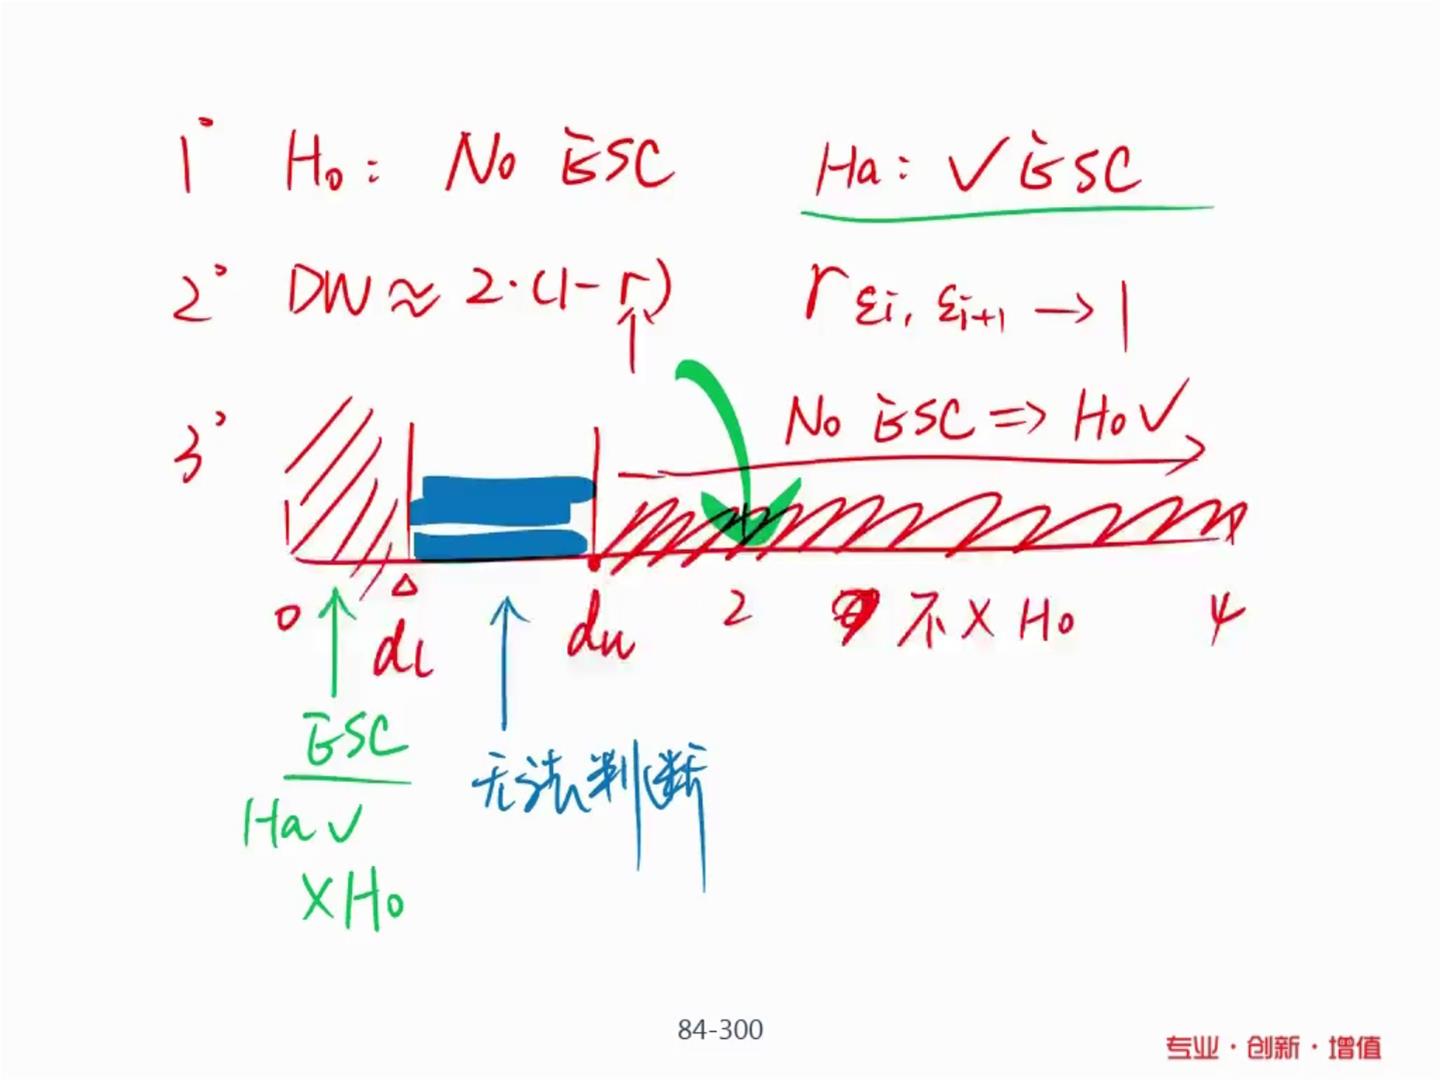 1° H₀: No ESC Ha: ✓ ESC
2° DW ≈ 2·(1-r) r εi, εi+1 → 1
3° No ESC => H₀ ✓
0 dl du 2 不 X H₀ 4
ESC
Ha ✓
X H₀
无法判断
84-300
专业·创新·增值